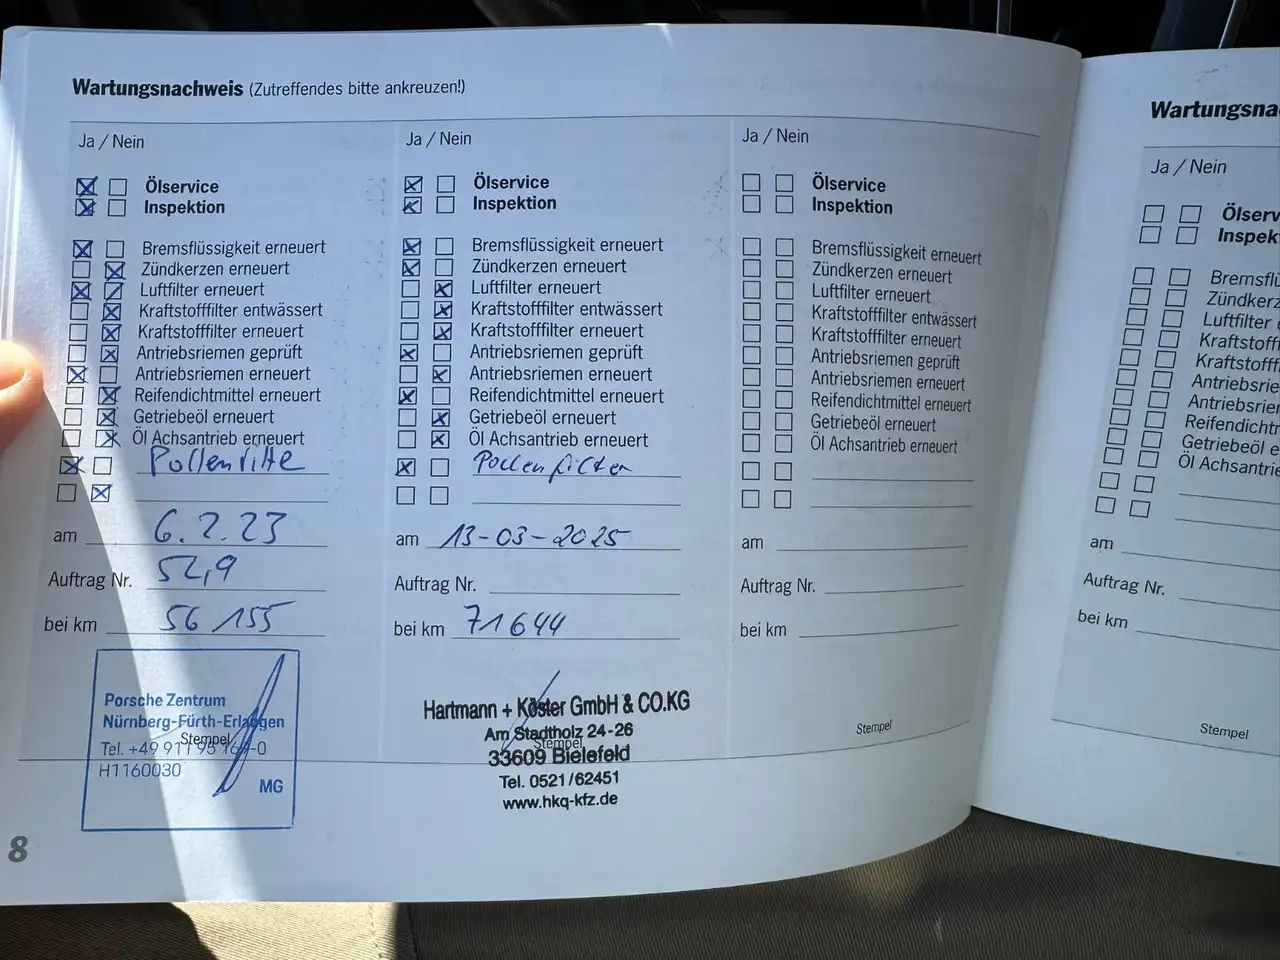 Wartungsnachweis (Zutreffendes bitte ankreuzen!)
Ja / Nein
Ölservice
Inspektion
Bremsflüssigkeit erneuert
Zündkerzen erneuert
Luftfilter erneuert
Kraftstofffilter entwässert
Kraftstofffilter erneuert
Antriebsriemen geprüft
Antriebsriemen erneuert
Reifendichtmittel erneuert
Getriebeöl erneuert
Öl Achsantrieb erneuert
am 6.2.23
Auftrag Nr. 52,9
bei km 56 155
Porsche Zentrum
Nürnberg-Fürth-Erlangen
Stempel
Tel. +49 911 95
H1160030
MG
Ja / Nein
Ölservice
Inspektion
Bremsflüssigkeit erneuert
Zündkerzen erneuert
Luftfilter erneuert
Kraftstofffilter entwässert
Kraftstofffilter erneuert
Antriebsriemen geprüft
Antriebsriemen erneuert
Reifendichtmittel erneuert
Getriebeöl erneuert
Öl Achsantrieb erneuert
Pollenfilter
am 13-03-2025
Auftrag Nr.
bei km 71644
Hartmann + Köster GmbH & CO.KG
Am Stadtholz 24-26
Stempel
33609 Bielefeld
Tel. 0521/62451
www.hkq-kfz.de
Ja / Nein
Ölservice
Inspektion
Bremsflüssigkeit erneuert
Zündkerzen erneuert
Luftfilter erneuert
Kraftstofffilter entwässert
Kraftstofffilter erneuert
Antriebsriemen geprüft
Antriebsriemen erneuert
Reifendichtmittel erneuert
Getriebeöl erneuert
Öl Achsantrieb erneuert
am
Auftrag Nr.
bei km
Stempel
8
Wartungsna
Ja / Nein
Ölserv
Inspek
Bremsflü
Zündkerz
Luftfilter
Kraftstofff
Kraftstofff
Antriebsrie
Antriebsrie
Reifendichtm
Getriebeöl e
Öl Achsantrie
am
Auftrag Nr.
bei km
Stempel